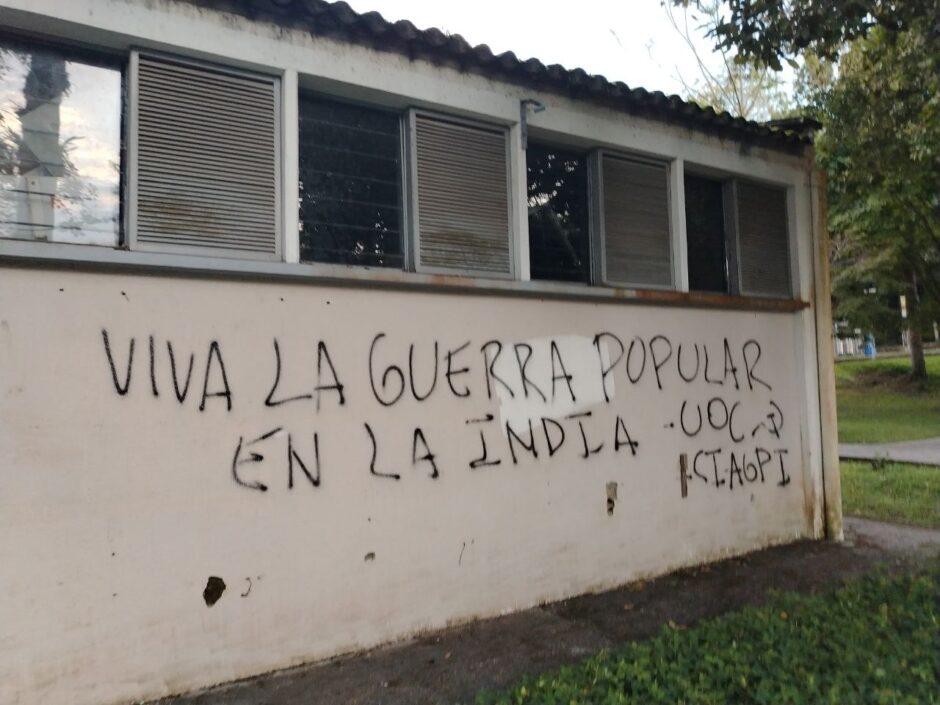 VIVA LA GUERRA POPULAR
EN LA INDIA
·UOC
·CI·AGPI